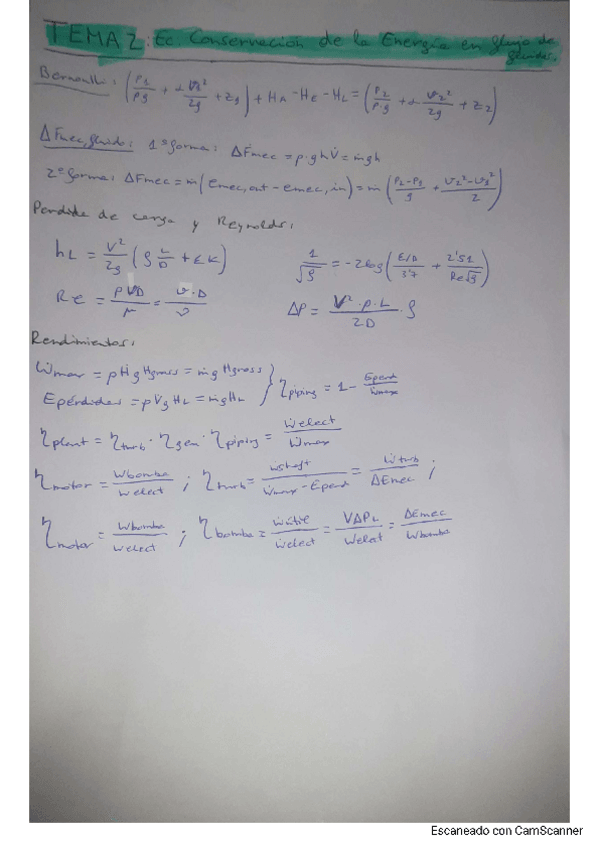 TEMA 2: Ec. Conservación de la Energía en flujo de fluidos.
Bernoulli: (P1/ρg + α V1²/2g + z1) + HA - HE - HL = (P2/ρ·g + α V2²/2g + z2)
ΔEmec,fluido: 1ª forma: ΔEmec = ρ·g h V̇ = ṁgh
2ª forma: ΔEmec = ṁ(emec,out - emec,in) = ṁ(P2-P1/ρ + V2²-V1²/2)
Perdida de carga y Reynolds:
hL = V²/2g (f L/D + ΣK)
1/√f = -2log(E/D/3'7 + 2'51/Re√f)
Re = ρVD/μ = v·D/ν
ΔP = V²·ρ·L/2D · f
Rendimientos:
Ẇmax = ρV̇g Hgross = ṁg Hgross
Epérdidas = ρV̇g HL = ṁg HL
ηpiping = 1 - Eperd/Ẇmax
ηplant = ηturb · ηgen · ηpiping = Ẇelect/Ẇmax
ηmotor = Wbomba/Welect ; ηturb = Ẇshaft/Ẇmax - Eperd = Ẇturb/ΔEmec ;
ηmotor = Wbomba/Welect ; ηbomba = Ẇútil/Ẇelect = VΔPL/Welect = ΔEmec/Wbomba
Escaneado con CamScanner